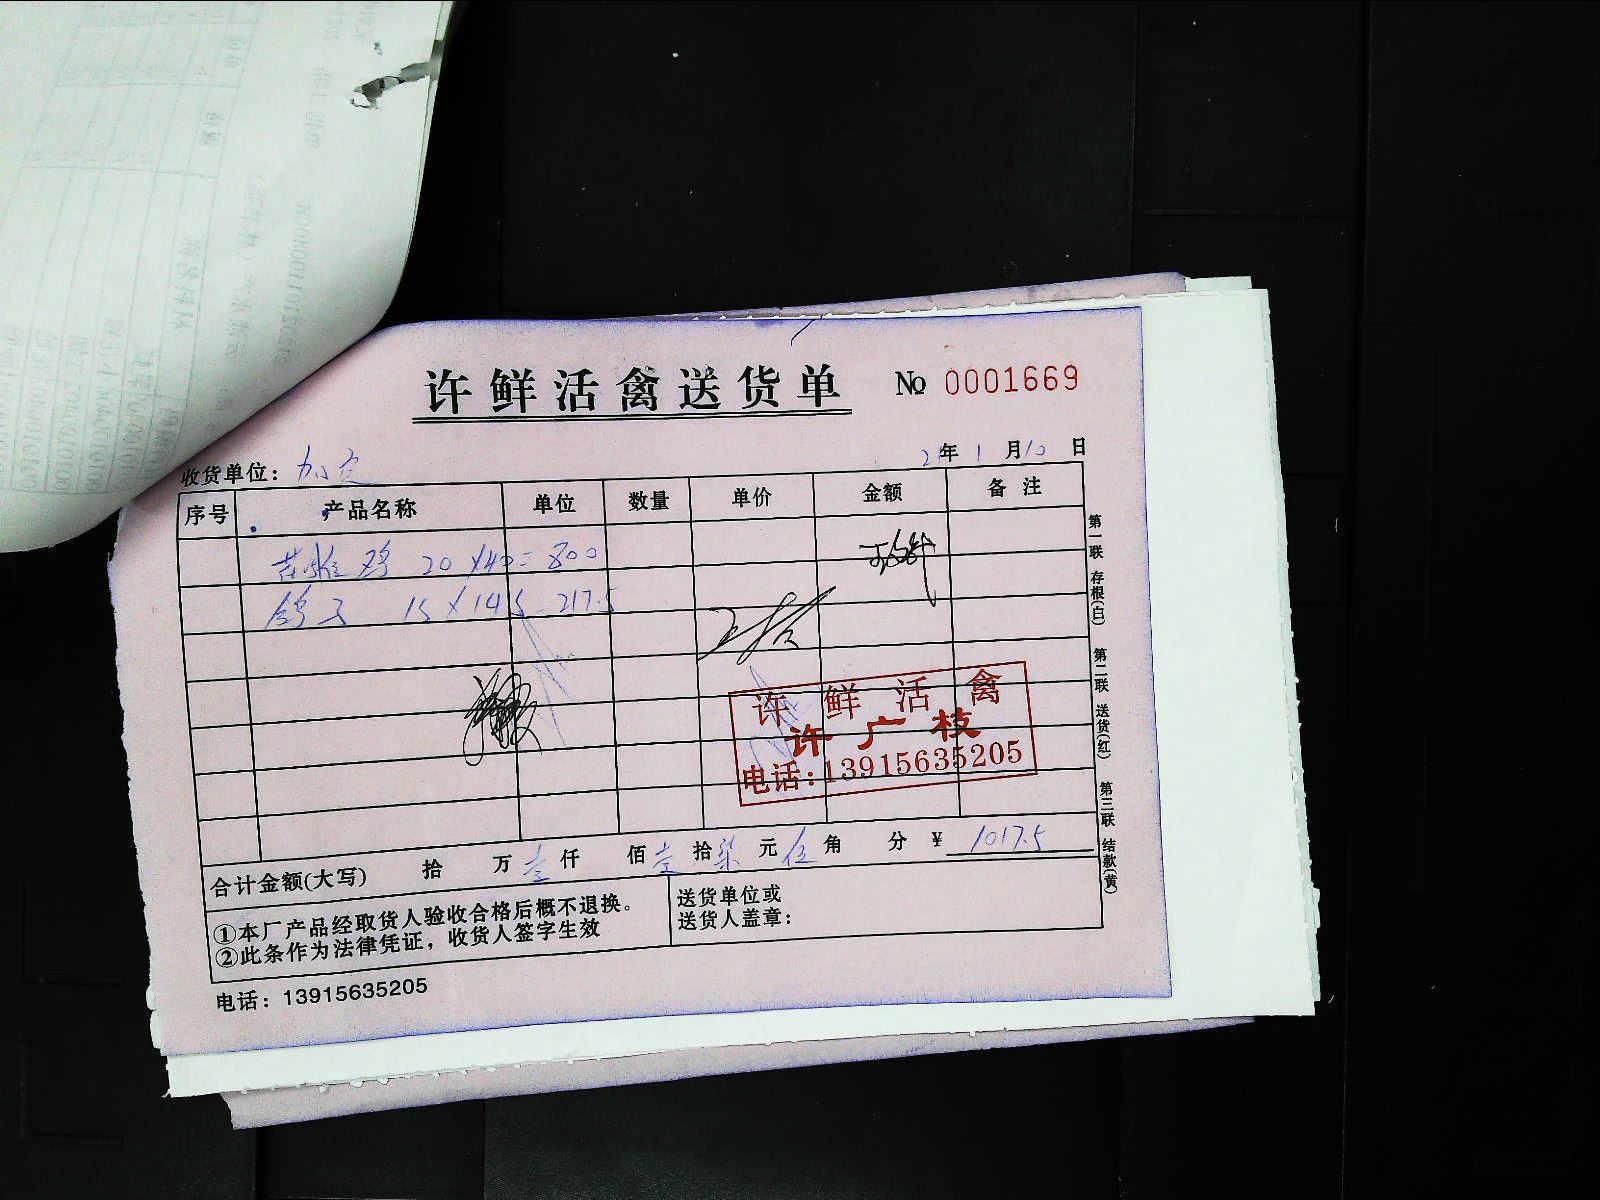 许鲜活禽送货单 No 0001669
收货单位: 加定 21年1月10日
序号 产品名称 单位 数量 单价 金额 备注
鸡 20×40=800
鸽子 15×14.5=217.5
许鲜活禽
许广枝
电话:13915635205
合计金额(大写) 拾 万壹仟 佰壹拾柒元伍角 分 ¥ 1017.5
①本厂产品经取货人验收合格后概不退换。
②此条作为法律凭证，收货人签字生效
送货单位或
送货人盖章:
电话: 13915635205
第一联 存根(白)
第二联 送货(红)
第三联 结款(黄)